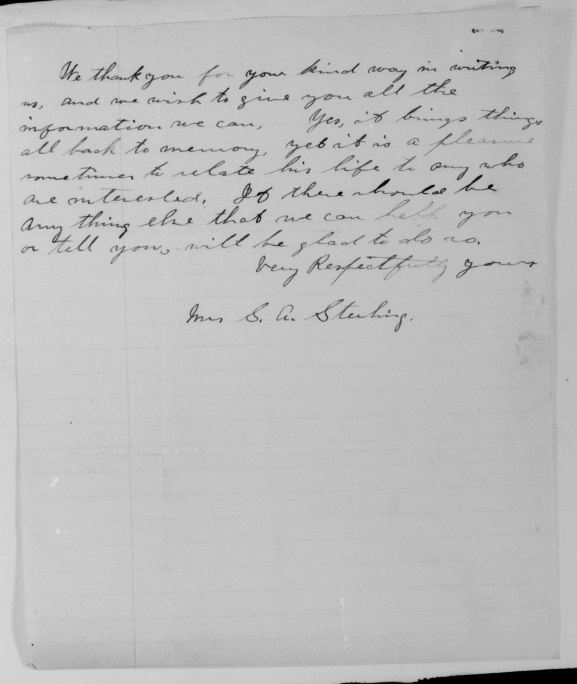 We thank you for your kind way in writing
us, and we wish to give you all the
information we can. Yes, it brings things
all back to memory, yet it is a pleasure
sometimes to relate his life to any who
are interested. If there should be
any thing else that we can help you
or tell you, will be glad to do so.
Very Respectfully yours
Mrs S. A. Sterling.